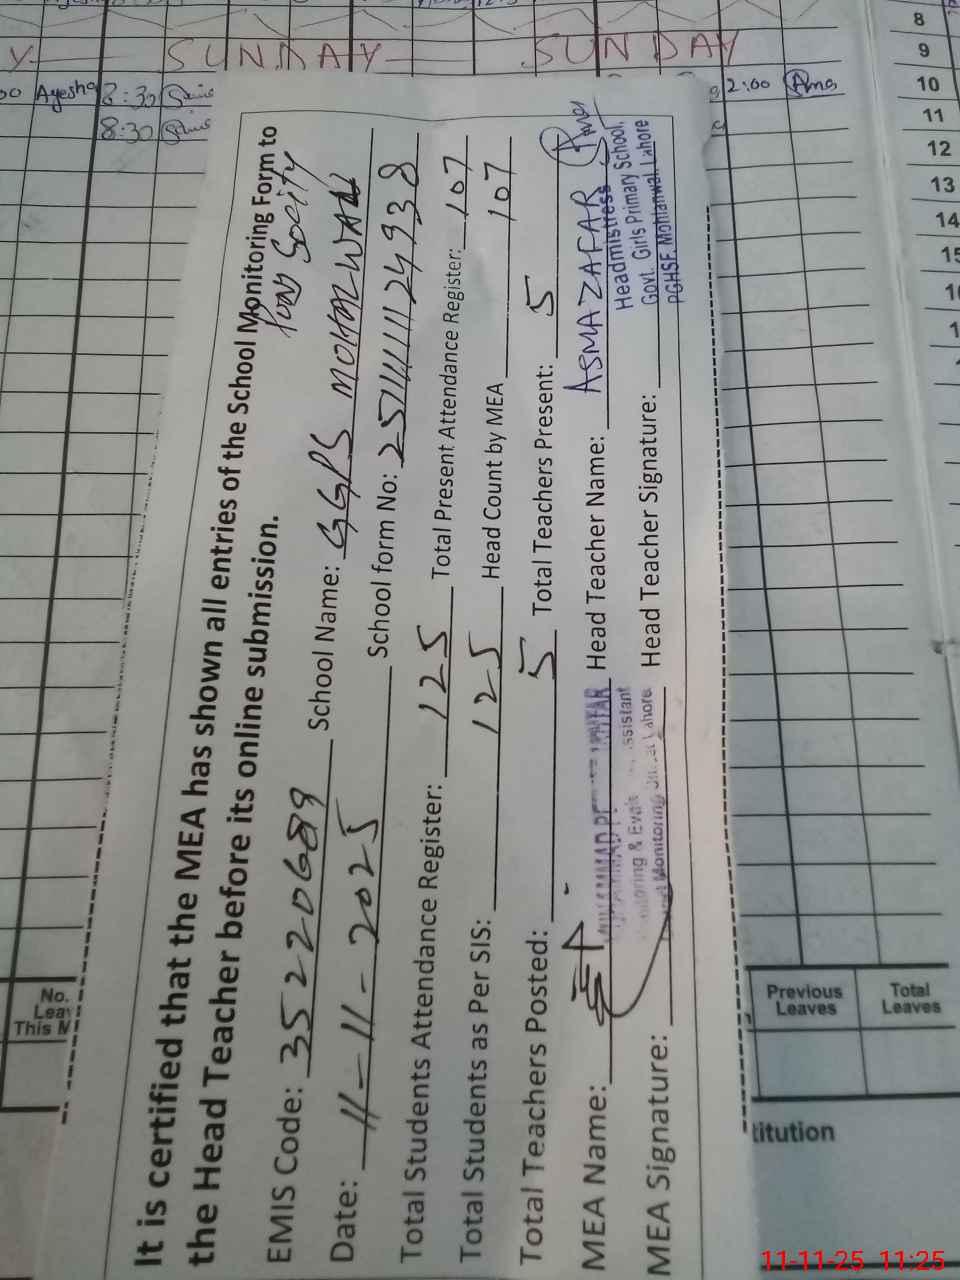 It is certified that the MEA has shown all entries of the School Monitoring Form to
the Head Teacher before its online submission.
EMIS Code: 35220689 School Name: GGPS MOHALWAL
Date: 11-11-2025 School form No:
Total Students Attendance Register: 125 Total Present Attendance Register: 107
Total Students as Per SIS: 125 Head Count by MEA 107
Total Teachers Posted: 5 Total Teachers Present: 5
MEA Name: Head Teacher Name: ASMA ZAFAR
Headmistress
Govt. Girls Primary School,
PGHSF. Mohlanwal Lahore
MEA Signature: Head Teacher Signature:
SUNDAY SUNDAY
Ayesha 8:30 2:00
8:30
8
9
10
11
12
13
14
No.
This
Previous
Leaves
Total
Leaves
11-11-25 11:25